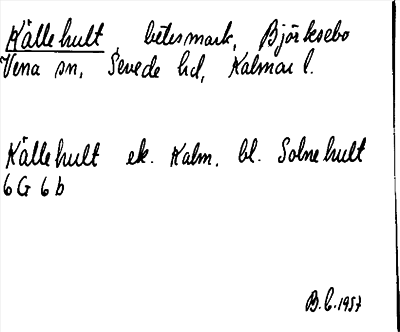 Källehult, betesmark, Björksebo
Vena sn, Sevede hd, Kalmar l.
Källehult ek. Kalm. bl. Solnehult
6 G 6 b
B.C. 1957